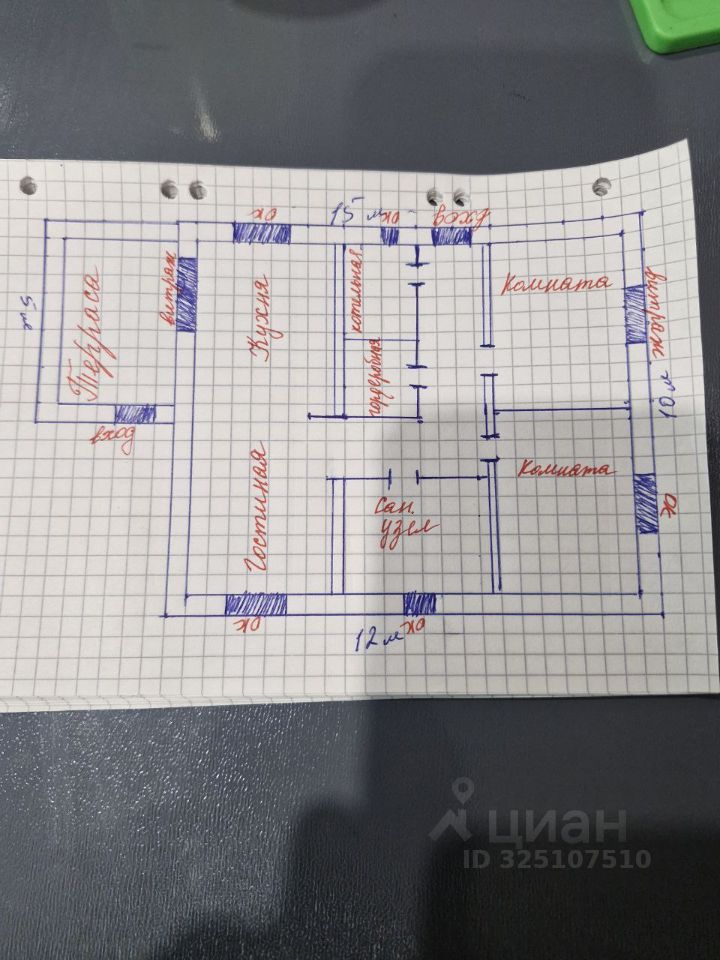 ок
15 м
ок
вход
Терраса
5 м
витраж
Кухня
котельная
гордеробная
Комната
витраж
10 м
вход
Гостиная
Сан.
узел
Комната
ок
ок
12 м
ок
циан
ID 325107510